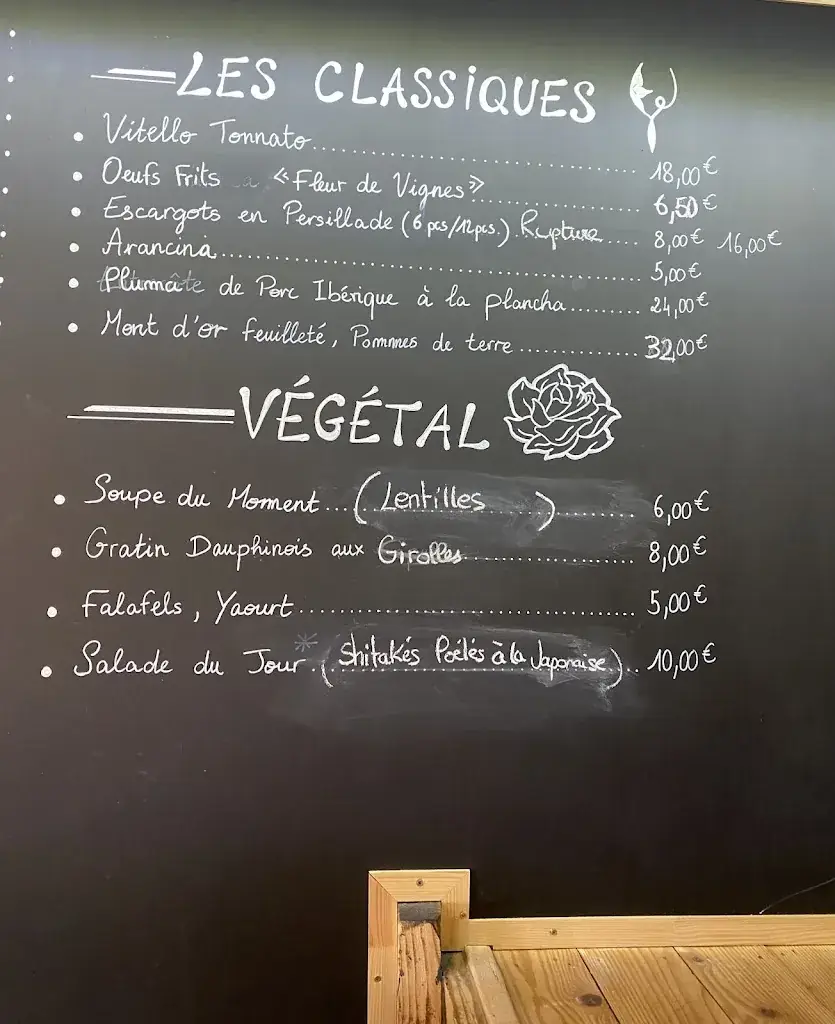 LES CLASSIQUES
• Vitello Tonnato.................... 18,00€
• Oeufs Frits à «Fleur de Vignes».................... 6,50€
• Escargots en Persillade (6 pcs/12pcs.) Rupture.... 8,00€ 16,00€
• Arancina.................... 5,00€
• Pluma de Porc Ibérique à la plancha......... 24,00€
• Mont d'or feuilleté, Pommes de terre............... 32,00€
VÉGÉTAL
• Soupe du Moment...(Lentilles)........... 6,00€
• Gratin Dauphinois aux Girolles.................... 8,00€
• Falafels, Yaourt.................... 5,00€
• Salade du Jour*..(Shitakés Poélés à la Japonaise).. 10,00€